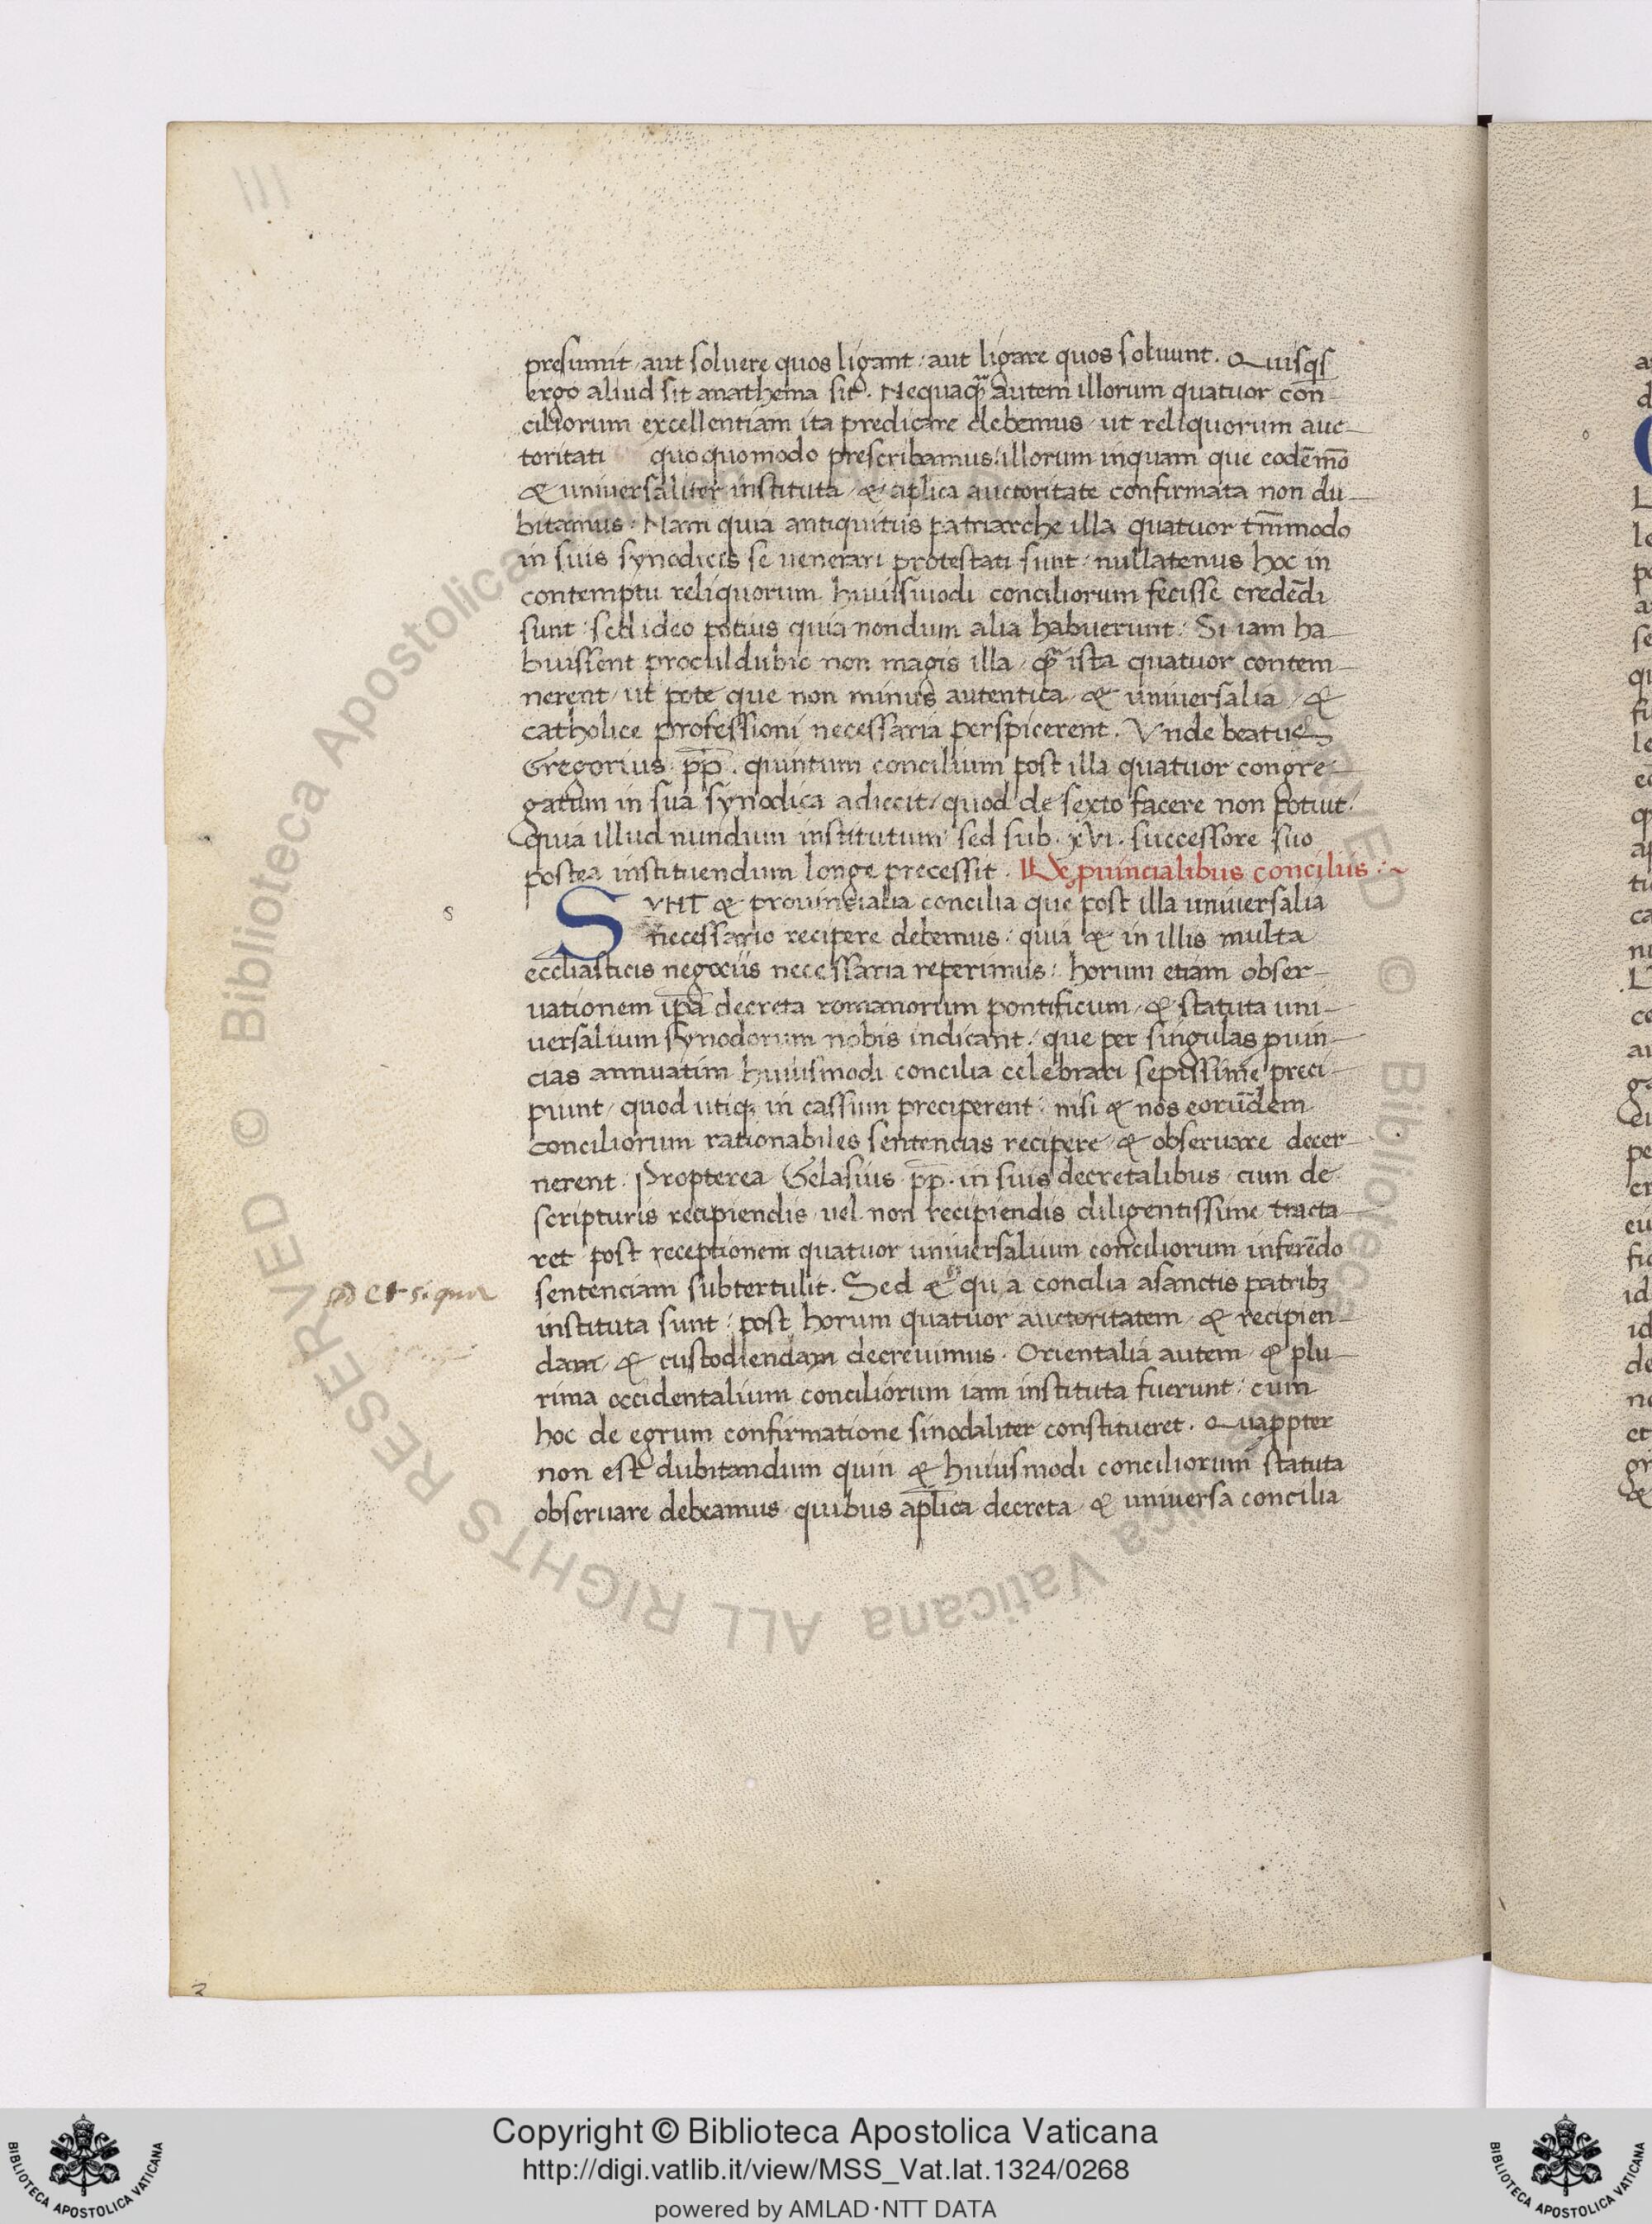 presumit aut soluere quos ligant: aut ligare quos soluunt. Quisq̅s
ergo aliud sit anathema sit. Nequaq̅ autem illorum quatuor con
ciliorum excellentiam ita predicare debemus ut reliquorum auc-
toritati quoquomodo prescribamus: illorum inquam que eodē mō
& uniuersaliter instituta & aplica auctoritate confirmata non du-
bitamus: Nam quia antiquitus patriarche illa quatuor tm̅modo
in suis synodicis se uenerari protestati sunt: nullatenus hoc in
contemptu reliquorum huiusmodi conciliorum fecisse credēdi
sunt: sed ideo potius quia nondum alia habuerunt: Si iam ha-
buissent proculdubio non magis illa q̅ ista quatuor contem-
nerent ut pote que non minus autentica & uniuersalia &
catholice professioni necessaria perspicerent. Vnde beatus
Gregorius pp̅. quintum concilium post illa quatuor congre-
gatum in sua synodica adiecit: quod de sexto facere non potuit
quia illud nundum institutum sed sub. xvi. successore suo
postea instituendum longe precessit. De puincialibus conciliis :~
SVNT & prouincialia concilia que post illa uniuersalia
s
necessario recipere debemus: quia & in illis multa
eccliasticis negociis necessaria reperimus: horum etiam obser-
uationem ip̅a decreta romanorum pontificum & statuta uni-
uersalium synodorum nobis indicant: que per singulas puin-
cias annuatim huiusmodi concilia celebrari sepissime preci-
piunt quod utiq; in cassum preciperent: nisi & nos eorūdem
conciliorum rationabiles sentencias recipere & obseruare decer-
nerent: Propterea Gelasius pp̅. in suis decretalibus cum de
scripturis recipiendis uel non recipiendis diligentissime tracta-
ret post receptionem quatuor uniuersalium conciliorum inferēdo
sentenciam subtertulit. Sed & qu a concilia asanctis patrib;
et siqua
instituta sunt: post horum quatuor auctoritatem & recipien-
dam & custodiendam decreuimus. Orientalia autem & plu-
rima occidentalium conciliorum iam instituta fuerunt: cum
hoc de eorum confirmatione sinodaliter constitueret. Quappter
non est dubitandum quin & huiusmodi conciliorum statuta
obseruare debeamus quibus ap̅lica decreta & uniuersa concilia
2
Copyright © Biblioteca Apostolica Vaticana
http://digi.vatlib.it/view/MSS_Vat.lat.1324/0268
powered by AMLAD·NTT DATA
BIBLIOTECA APOSTOLICA VATICANA
BIBLIOTECA APOSTOLICA VATICANA
© Biblioteca Apostolica Vaticana ALL RIGHTS RESERVED